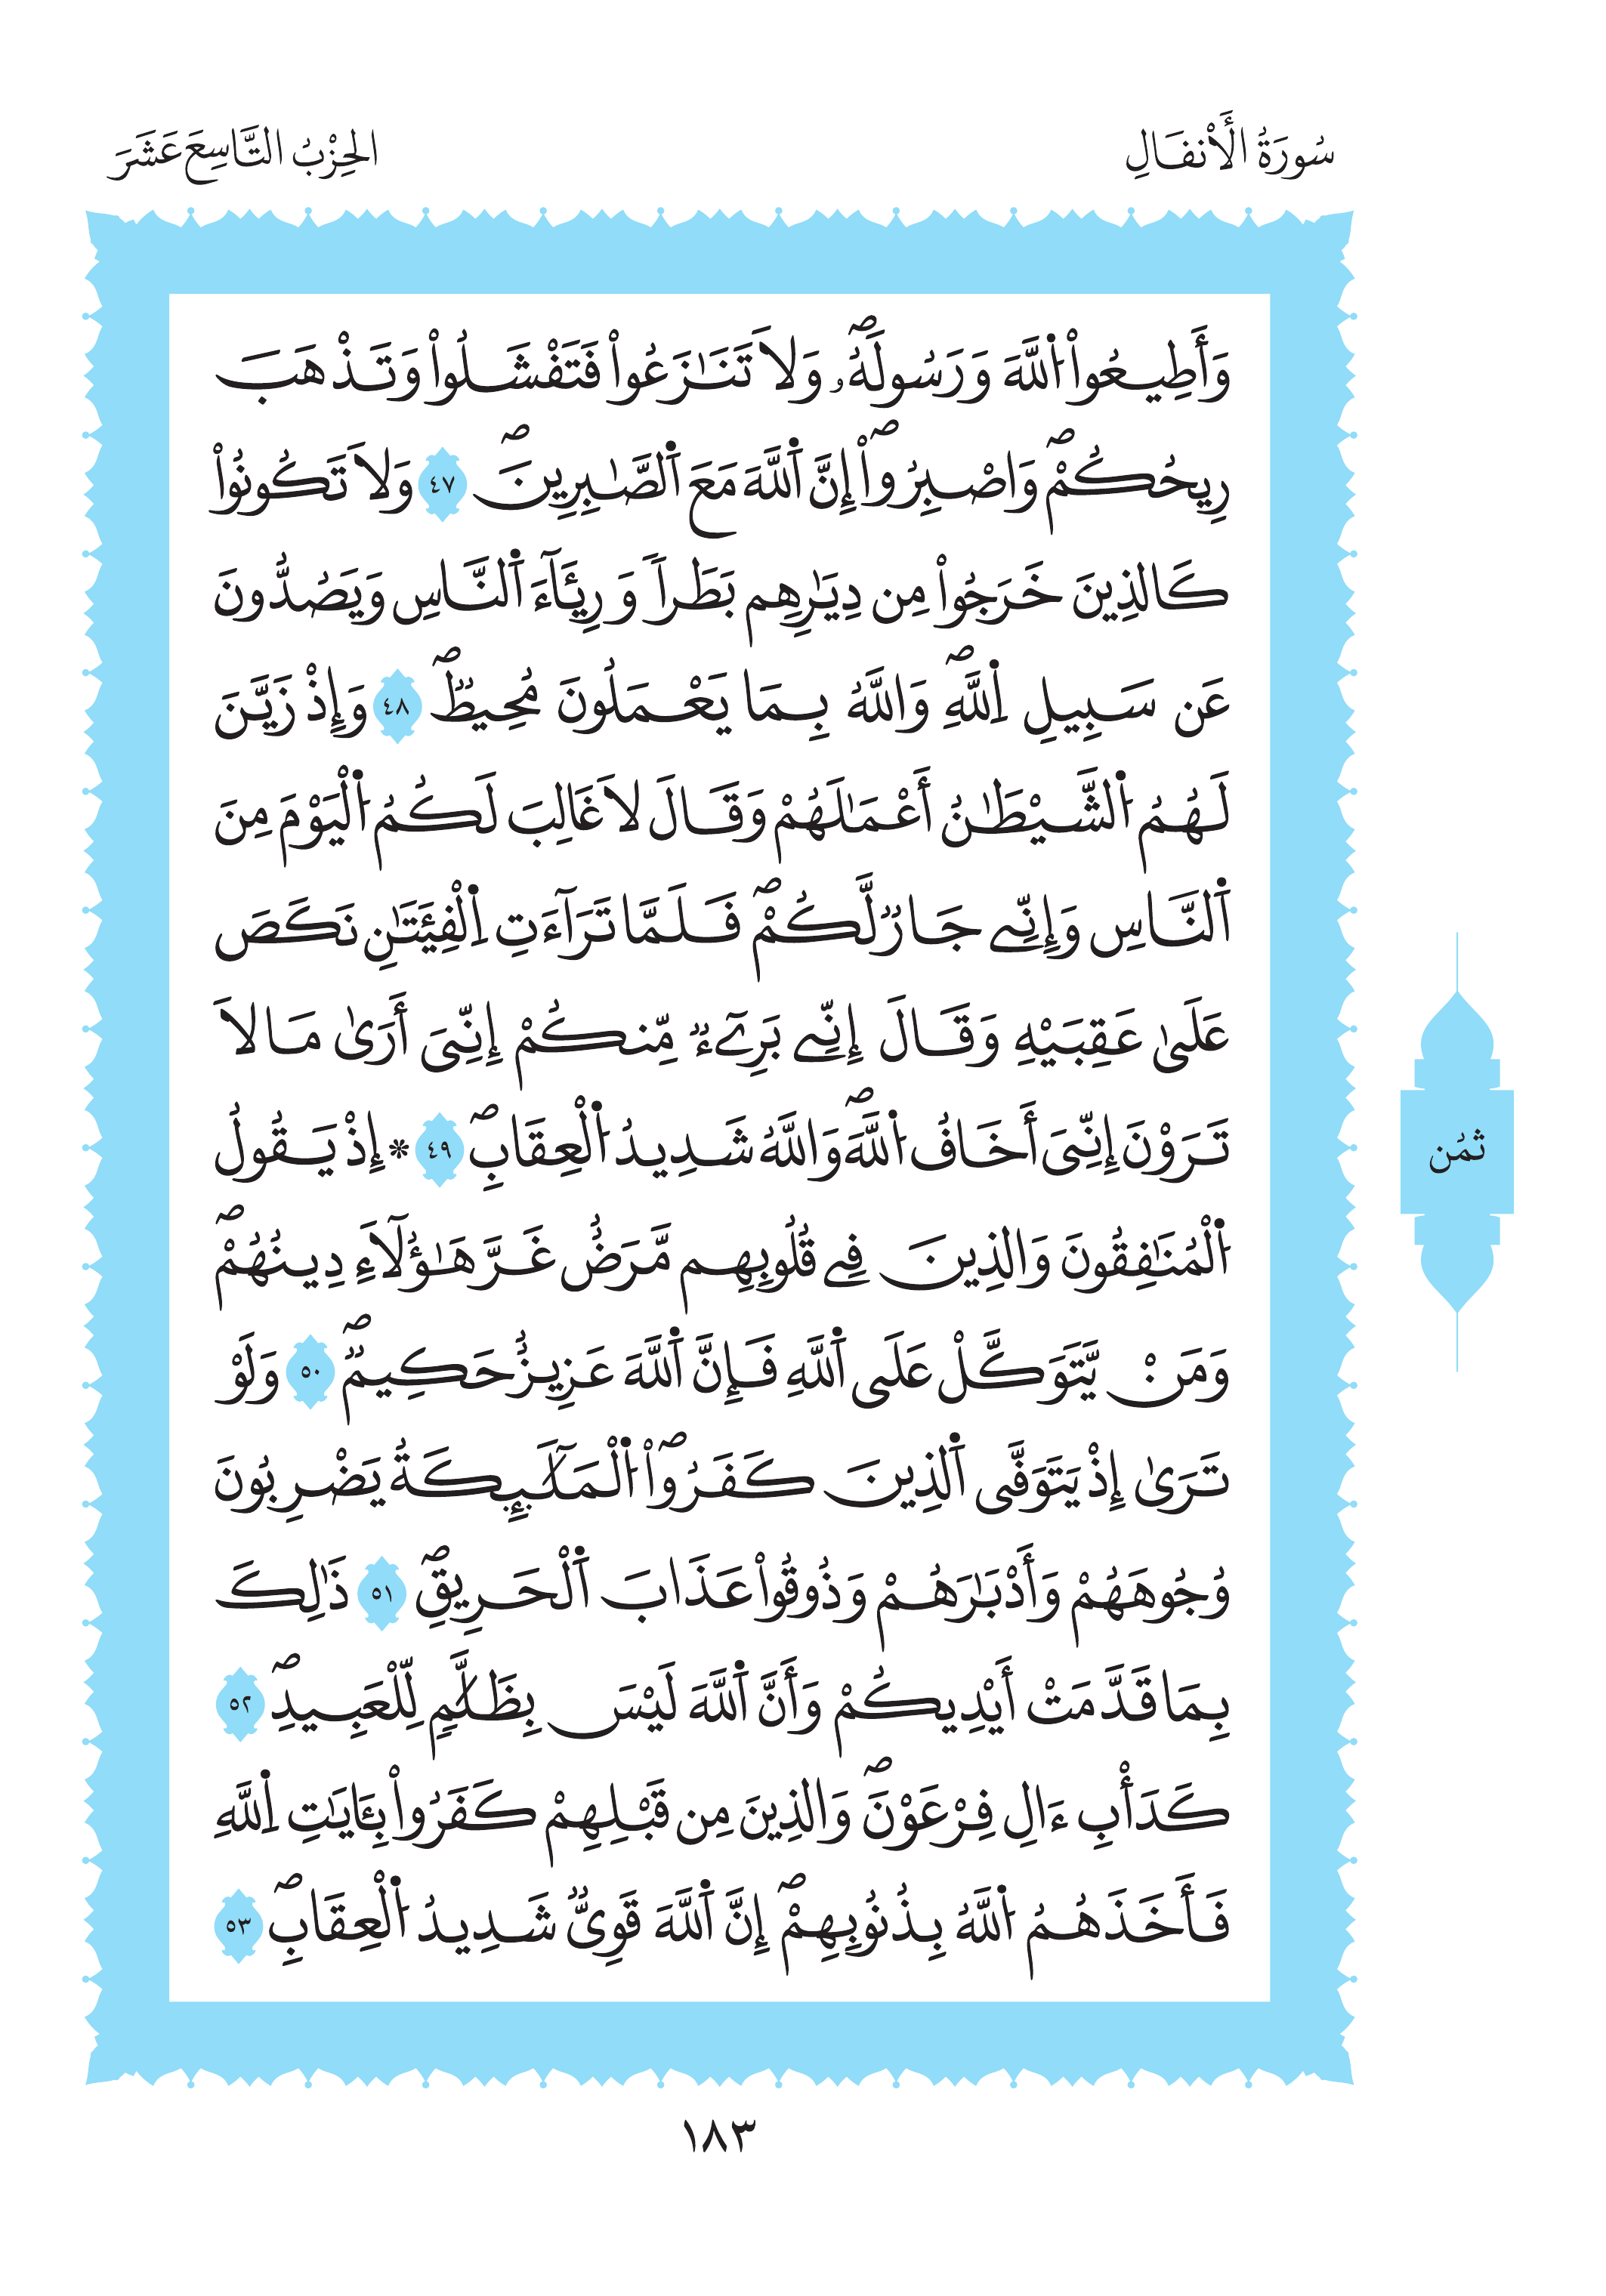 سُورَةُ الْأَنفَالِ
الحِزْبُ التَّاسِعَ عَشَرَ
وَأَطِيعُواْ اُ۬للَّهَ وَرَسُولَهُۥۖ وَلَا تَنَٰزَعُواْ فَتَفْشَلُواْ وَتَذْهَبَ
رِيحُكُمْۖ وَاصْبِرُوٓاْۖ إِنَّ اَ۬للَّهَ مَعَ اَ۬لصَّٰبِرِينَۖ ٤٧ وَلَا تَكُونُواْ
كَالذِينَ خَرَجُواْ مِن دِيَٰرِهِم بَطَراٗ وَرِئَآءَ اَ۬لنَّاسِ وَيَصُدُّونَ
عَن سَبِيلِ اِ۬للَّهِۖ وَاللَّهُ بِمَا يَعْمَلُونَ مُحِيطٞۖ ٤٨ وَإِذْ زَيَّنَ
لَهُمُ اُ۬لشَّيْطَٰنُ أَعْمَٰلَهُمْ وَقَالَ لَا غَالِبَ لَكُمُ اُ۬لْيَوْمَ مِنَ
اَ۬لنَّاسِ وَإِنِّے جَارٞ لَّكُمْۖ فَلَمَّا تَرَآءَتِ اِ۬لْفِئَتَٰنِ نَكَصَ
عَلَىٰ عَقِبَيْهِ وَقَالَ إِنِّے بَرِےٓءٞ مِّنكُمْ إِنِّيَ أَرَىٰ مَا لَا
تَرَوْنَ إِنِّيَ أَخَافُ اُ۬للَّهَۖ وَاللَّهُ شَدِيدُ اُ۬لْعِقَابِۖ ٤٩ * إِذْ يَقُولُ
اُ۬لْمُنَٰفِقُونَ وَالذِينَ فِے قُلُوبِهِم مَّرَضٌ غَرَّ هَٰٓؤُلَآءِ دِينُهُمْۖ
وَمَنْ يَّتَوَكَّلْ عَلَى اَ۬للَّهِ فَإِنَّ اَ۬للَّهَ عَزِيزٌ حَكِيمٞۖ ٥٠ وَلَوْ
تَرَىٰ إِذْ يَتَوَفَّى اَ۬لذِينَ كَفَرُواْۖ اُ۬لْمَلَٰٓئِكَةُ يَضْرِبُونَ
وُجُوهَهُمْ وَأَدْبَٰرَهُمْ وَذُوقُواْ عَذَابَ اَ۬لْحَرِيقِۖ ٥١ ذَٰلِكَ
بِمَا قَدَّمَتْ أَيْدِيكُمْ وَأَنَّ اَ۬للَّهَ لَيْسَ بِظَلَّٰمٖ لِّلْعَبِيدِۖ ٥٢
كَدَأْبِ ءَالِ فِرْعَوْنَۖ وَالذِينَ مِن قَبْلِهِمْ كَفَرُواْ بِـَٔايَٰتِ اِ۬للَّهِ
فَأَخَذَهُمُ اُ۬للَّهُ بِذُنُوبِهِمْۖ إِنَّ اَ۬للَّهَ قَوِيّٞ شَدِيدُ اُ۬لْعِقَابِۖ ٥٣
ثُمُن
١٨٣